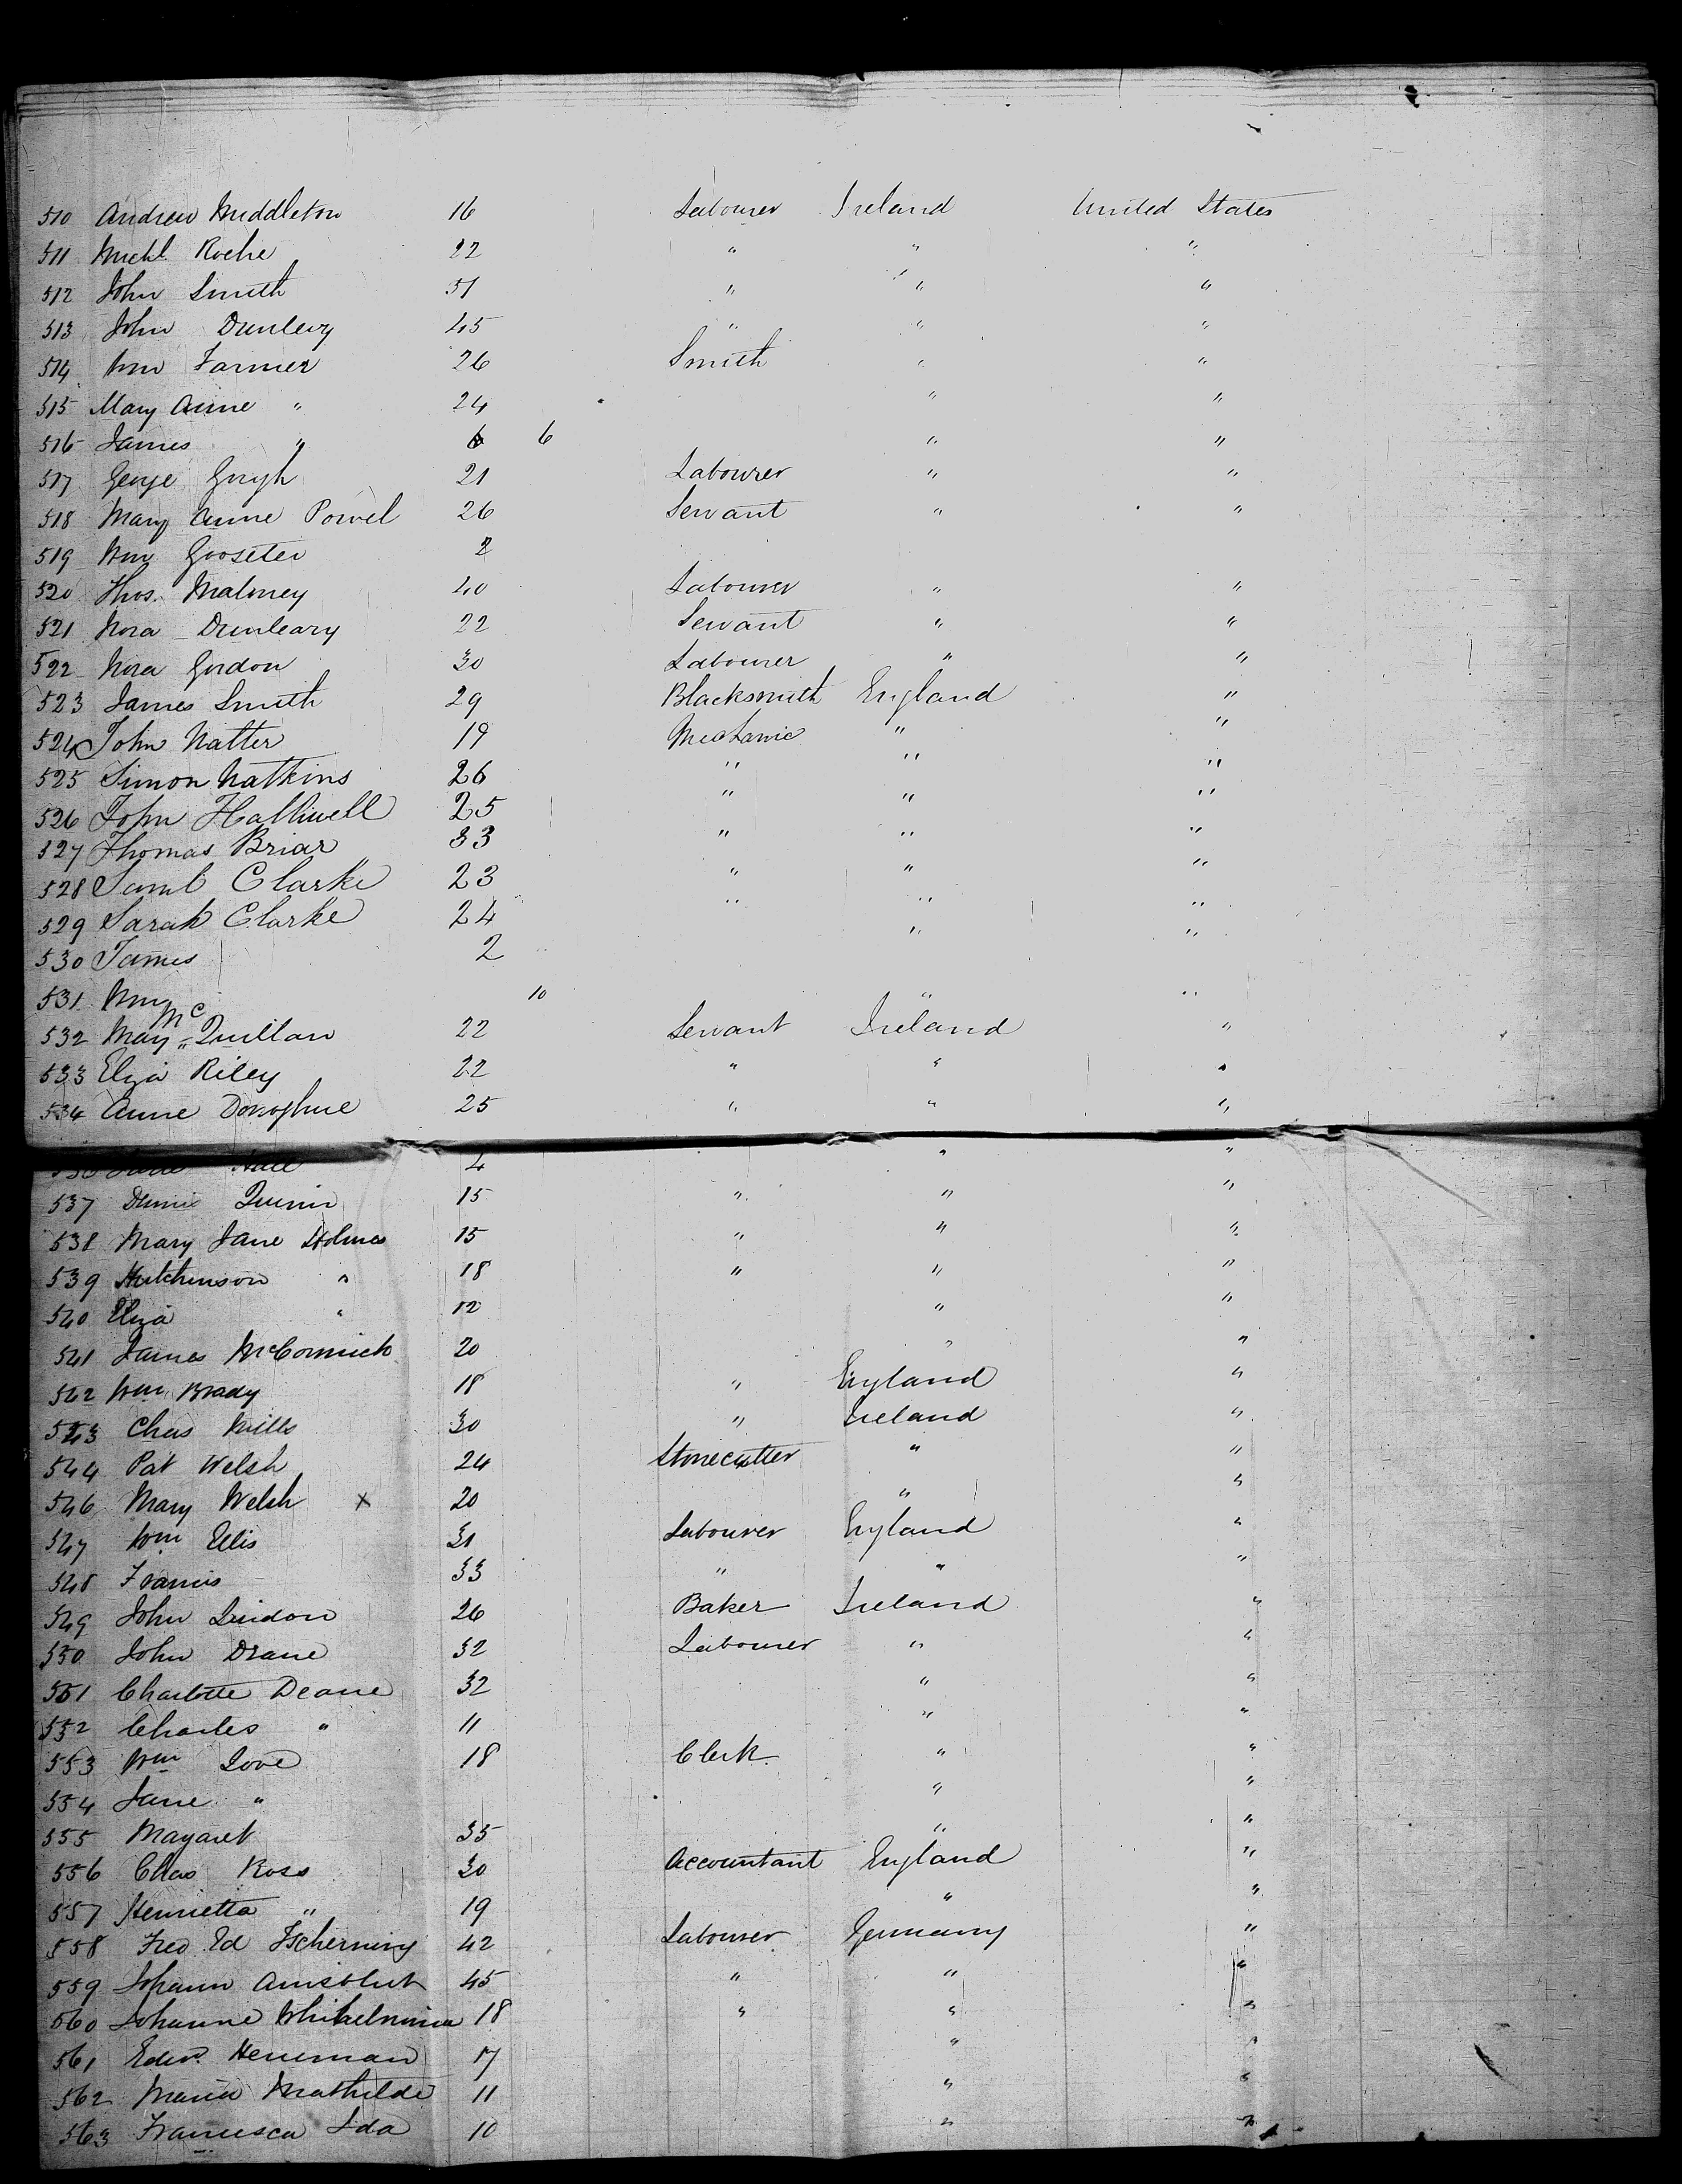 510 Andrew Middleton 16 Labourer Ireland United States
511 Michl Roche 22 " " "
512 John Smith 51 " " "
513 John Dunlevy 45 " " "
514 Wm Farmer 26 Smith " "
515 Mary Anne " 24 " "
516 James " 6 6 " "
517 George Gough 21 Labourer " "
518 Mary Anne Powel 26 Servant " "
519 Wm Gooseter 2
520 Thos. Maloney 40 Labourer " "
521 Nora Dunleavy 22 Servant " "
522 Nora Gordon 30 Labourer " "
523 James Smith 29 Blacksmith England "
524 John Natter 19 Mechanic " "
525 Simon Natkins 26 " " "
526 John Halliwell 25 " " "
527 Thomas Briar 33 " " "
528 Saml Clarke 23 " " "
529 Sarah Clarke 24 " " "
530 James 2 " "
531 Wm 10 " "
532 Mary McQuillan 22 Servant Ireland "
533 Eliza Riley 22 " " "
534 Anne Donoghue 25 " " "
4 " "
537 Quinn 15 " " "
538 Mary Jane Holmes 15 " " "
539 Hutchinson " 18 " " "
540 Eliza " 12 " "
541 James McCormick 20 " "
542 Wm Brady 18 " England "
543 Chas Mills 30 " Ireland "
544 Pat Welsh 24 Stonecutter " "
546 Mary Welsh x 20 " "
547 Wm Ellis 31 Labourer England "
548 Francis 33 " " "
549 John Lindon 26 Baker Ireland "
550 John Drane 32 Labourer " "
551 Charlotte Deane 32 " "
552 Charles " 11 " "
553 Wm Love 18 Clerk " "
554 Jane " " "
555 Margaret 35 " "
556 Chas Ross 30 Accountant England "
557 Henrietta " 19 " "
558 Fred Ed Tscherning 42 Labourer Germany "
559 Johann 45 " " "
560 Johanne Whilhelmina 18 " " "
561 Edwd. Heneman 17 " "
562 Maria Mathilde 11 " "
563 Francisca Ida 10 " "